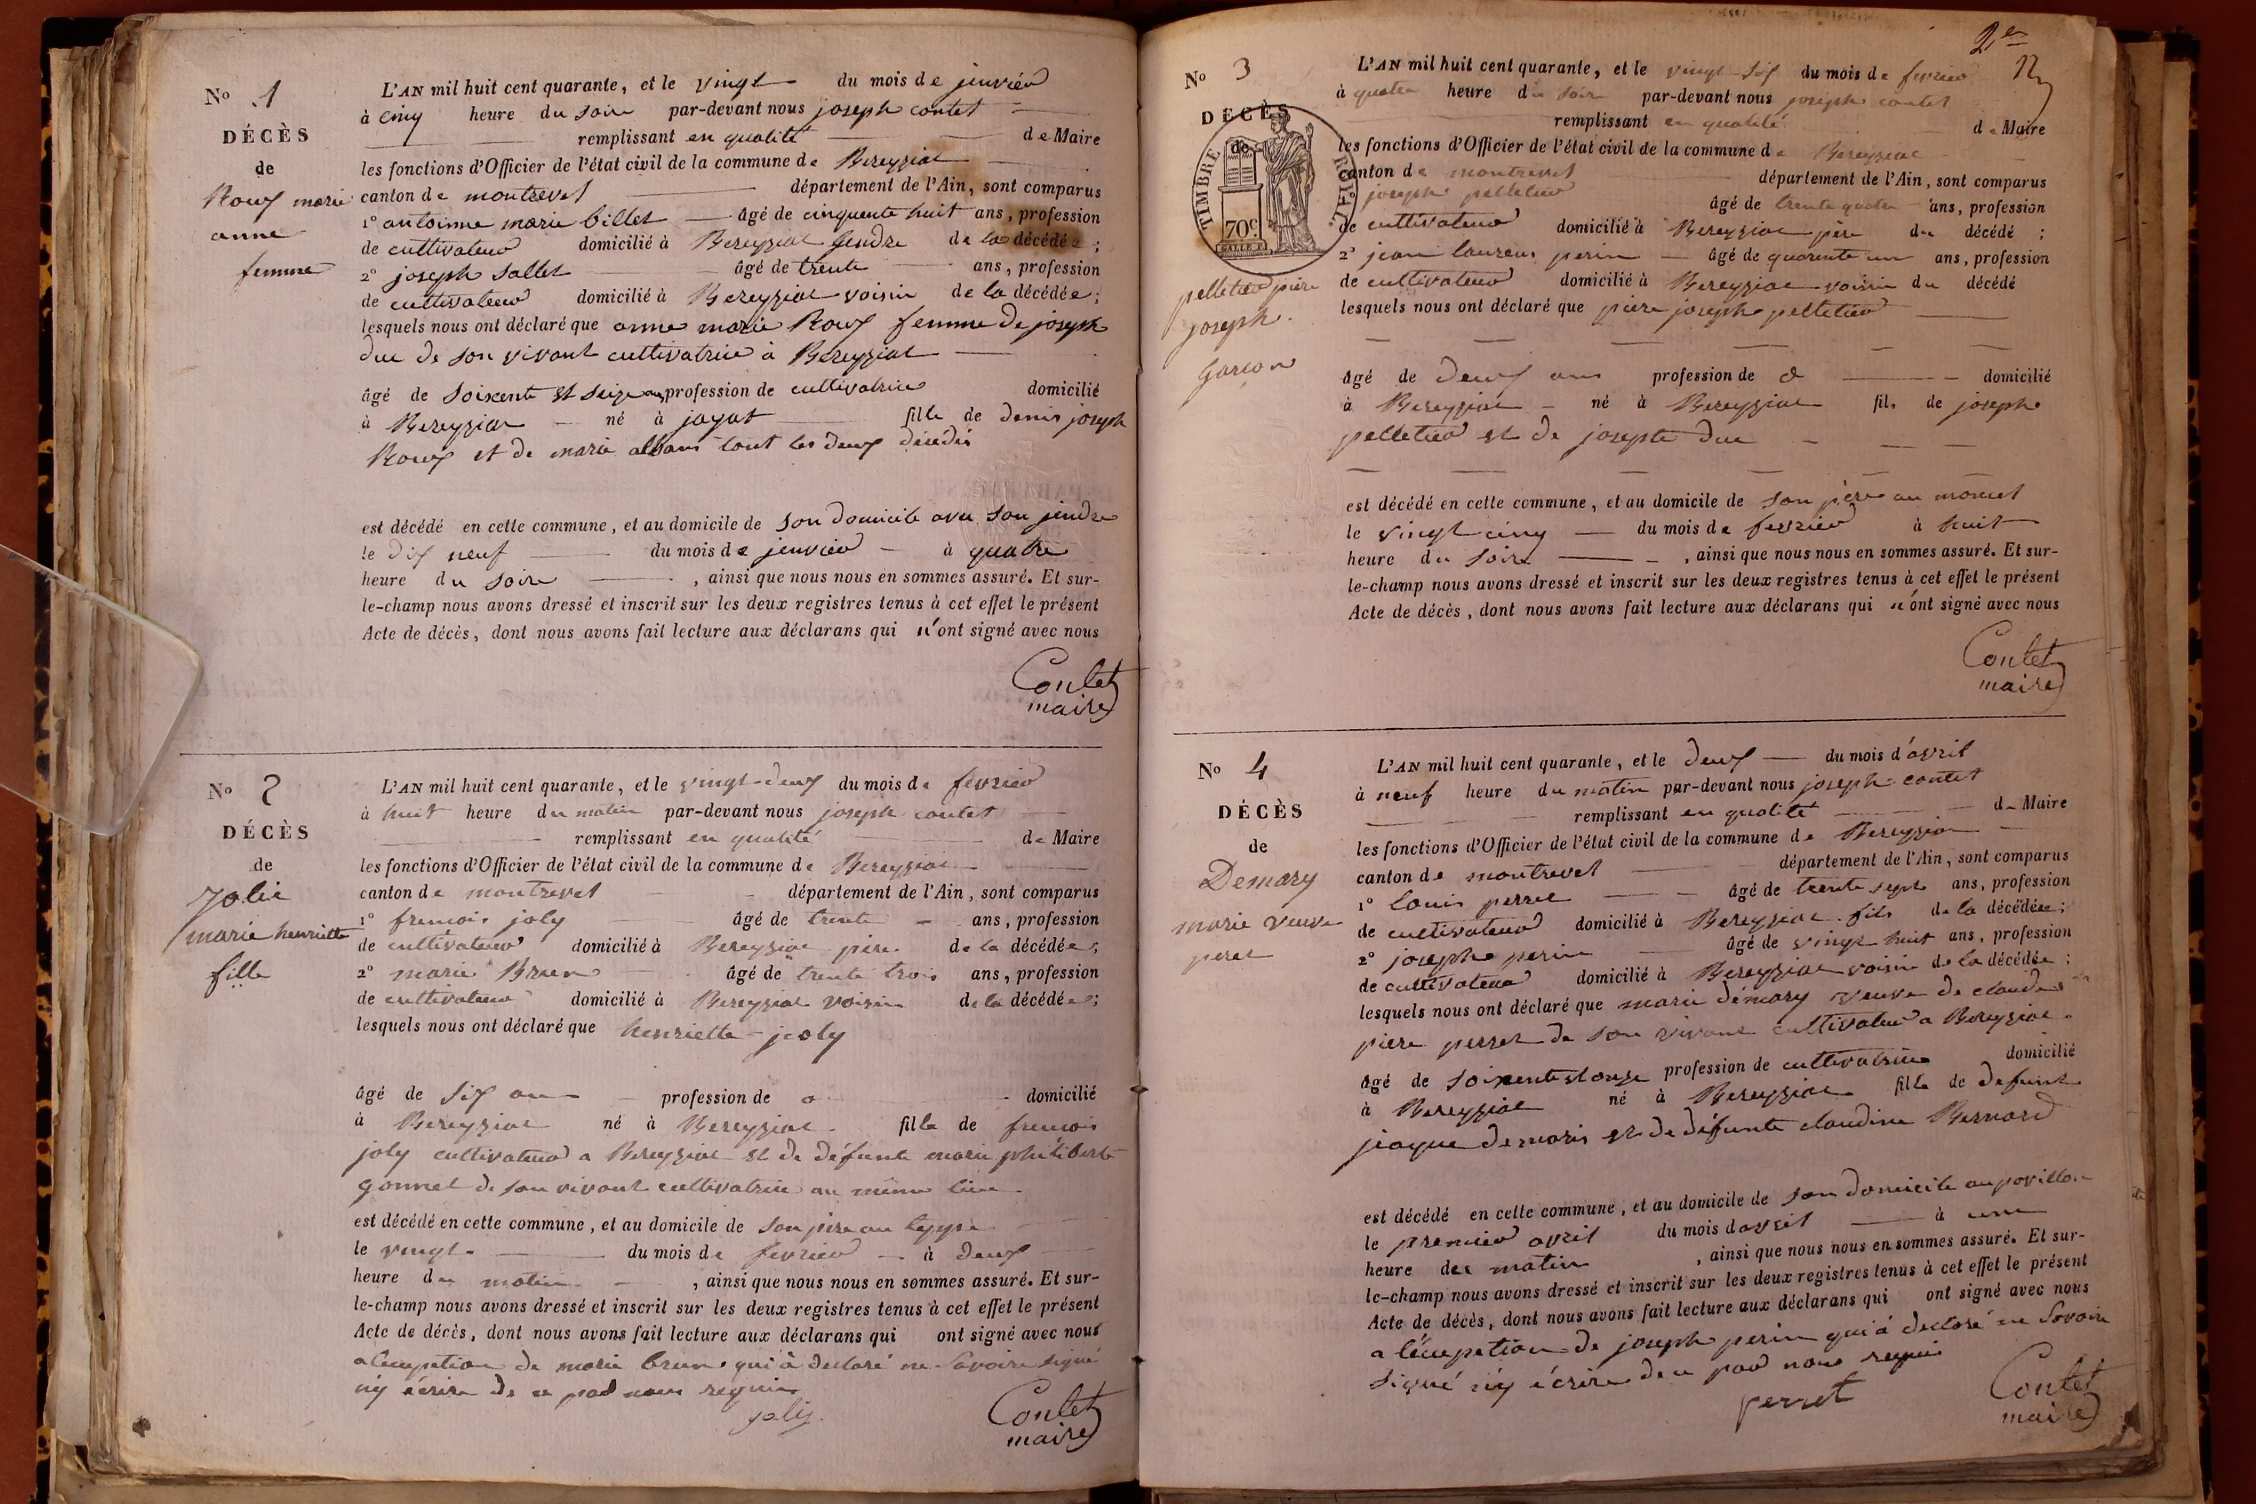 N° 1
DÉCÈS
de
Roux marie
anne
femme
L'AN mil huit cent quarante, et le vingt du mois de jenvier
à cinq heure du soire par-devant nous joseph contet
remplissant en qualité de Maire
les fonctions d'Officier de l'état civil de la commune de Bereyziat
canton de montrevel département de l'Ain, sont comparus
1° antoinne marie billet âgé de cinquente huit ans, profession
de cultivateur domicilié à Bereyziat gendre de la décédée ;
2° joseph sallet âgé de trente ans, profession
de cultivateur domicilié à Bereyziat voisin de la décédée ;
lesquels nous ont déclaré que anne marie Roux femme de joseph
duc de son vivant cultivatrice à Bereyziat
âgé de soixente et seize ans profession de cultivatrice domicilié
à Bereyziat né à jayat fille de denis joseph
Roux et de marie tout les deux décédés
est décédé en cette commune, et au domicile de son domicile avec son jendre
le dix neuf du mois de jenvier à quatre
heure du soire , ainsi que nous nous en sommes assuré. Et sur-
le-champ nous avons dressé et inscrit sur les deux registres tenus à cet effet le présent
Acte de décès, dont nous avons fait lecture aux déclarans qui n'ont signé avec nous
Contet
maire
N° 2
DÉCÈS
de
jolie
marie henriette
fille
L'AN mil huit cent quarante, et le vingt-deux du mois de fevrier
à huit heure du matin par-devant nous joseph contet
remplissant en qualité de Maire
les fonctions d'Officier de l'état civil de la commune de Bereyziat
canton de montrevel département de l'Ain, sont comparus
1° francois joly âgé de trente ans, profession
de cultivateur domicilié à Bereyziat père de la décédée ;
2° marie Brun âgé de trente trois ans, profession
de cultivateur domicilié à Bereyziat voisin de la décédée ;
lesquels nous ont déclaré que henriette joly
âgé de six an profession de o domicilié
à Bereyziat né à Bereyziat fille de francois
joly cultivateur a Bereyziat et de défunte marie philiberte
gonnet de son vivant cultivatrice au même lieu
est décédé en cette commune, et au domicile de son père au
le vingt du mois de fevrier à deux
heure du matin , ainsi que nous nous en sommes assuré. Et sur-
le-champ nous avons dressé et inscrit sur les deux registres tenus à cet effet le présent
Acte de décès, dont nous avons fait lecture aux déclarans qui ont signé avec nous
a de marie brun qui à declaré ne savoire signé
ny écrire de ce par nous requis
joly
Contet
maire
2e
N° 3
DÉCÈS
de
TIMBRE ROYAL
70c.
pelletier piere
joseph
garcon
L'AN mil huit cent quarante, et le vingt-six du mois de fevrier
à quatre heure du soir par-devant nous joseph contet
remplissant en qualité de Maire
les fonctions d'Officier de l'état civil de la commune de Bereyziat
canton de montrevel département de l'Ain, sont comparus
1° joseph pelletier âgé de trente quatre ans, profession
de cultivateur domicilié à Bereyziat père du décédé ;
2° jean laurens perin âgé de quarente un ans, profession
de cultivateur domicilié à Bereyziat voisin du décédé
lesquels nous ont déclaré que piere joseph pelletier
âgé de deux ans profession de o domicilié
à Bereyziat né à Bereyziat fils de joseph
pelletier et de josepte duc
est décédé en cette commune, et au domicile de son père au
le vingt cinq du mois de fevrier à huit
heure du soire , ainsi que nous nous en sommes assuré. Et sur-
le-champ nous avons dressé et inscrit sur les deux registres tenus à cet effet le présent
Acte de décès, dont nous avons fait lecture aux déclarans qui n'ont signé avec nous
Contet
maire
N° 4
DÉCÈS
de
Demary
marie veuve
peret
L'AN mil huit cent quarante, et le deux du mois d'avril
à neuf heure du matin par-devant nous joseph contet
remplissant en qualité de Maire
les fonctions d'Officier de l'état civil de la commune de Bereyziat
canton de montrevel département de l'Ain, sont comparus
1° louis perret âgé de trente sept ans, profession
de cultivateur domicilié à Bereyziat fils de la décédée ;
2° joseph perin âgé de vingt huit ans, profession
de cultivateur domicilié à Bereyziat voisin de la décédée ;
lesquels nous ont déclaré que marie démary veuve de claude
piere perret de son vivant cultivateur a Bereyziat
âgé de soixente et onze profession de cultivatrice domicilié
à Bereyziat né à Bereyziat fille de defunt
jiaque demaris et de défunte claudine Bernard
est décédé en cette commune, et au domicile de son domicile au povillon
le premier avril du mois d'avril à une
heure du matin , ainsi que nous nous en sommes assuré. Et sur-
le-champ nous avons dressé et inscrit sur les deux registres tenus à cet effet le présent
Acte de décès, dont nous avons fait lecture aux déclarans qui ont signé avec nous
a de joseph perin qui à declaré ne savoire
signé ny écrire de ce par nous requis
perret
Contet
maire